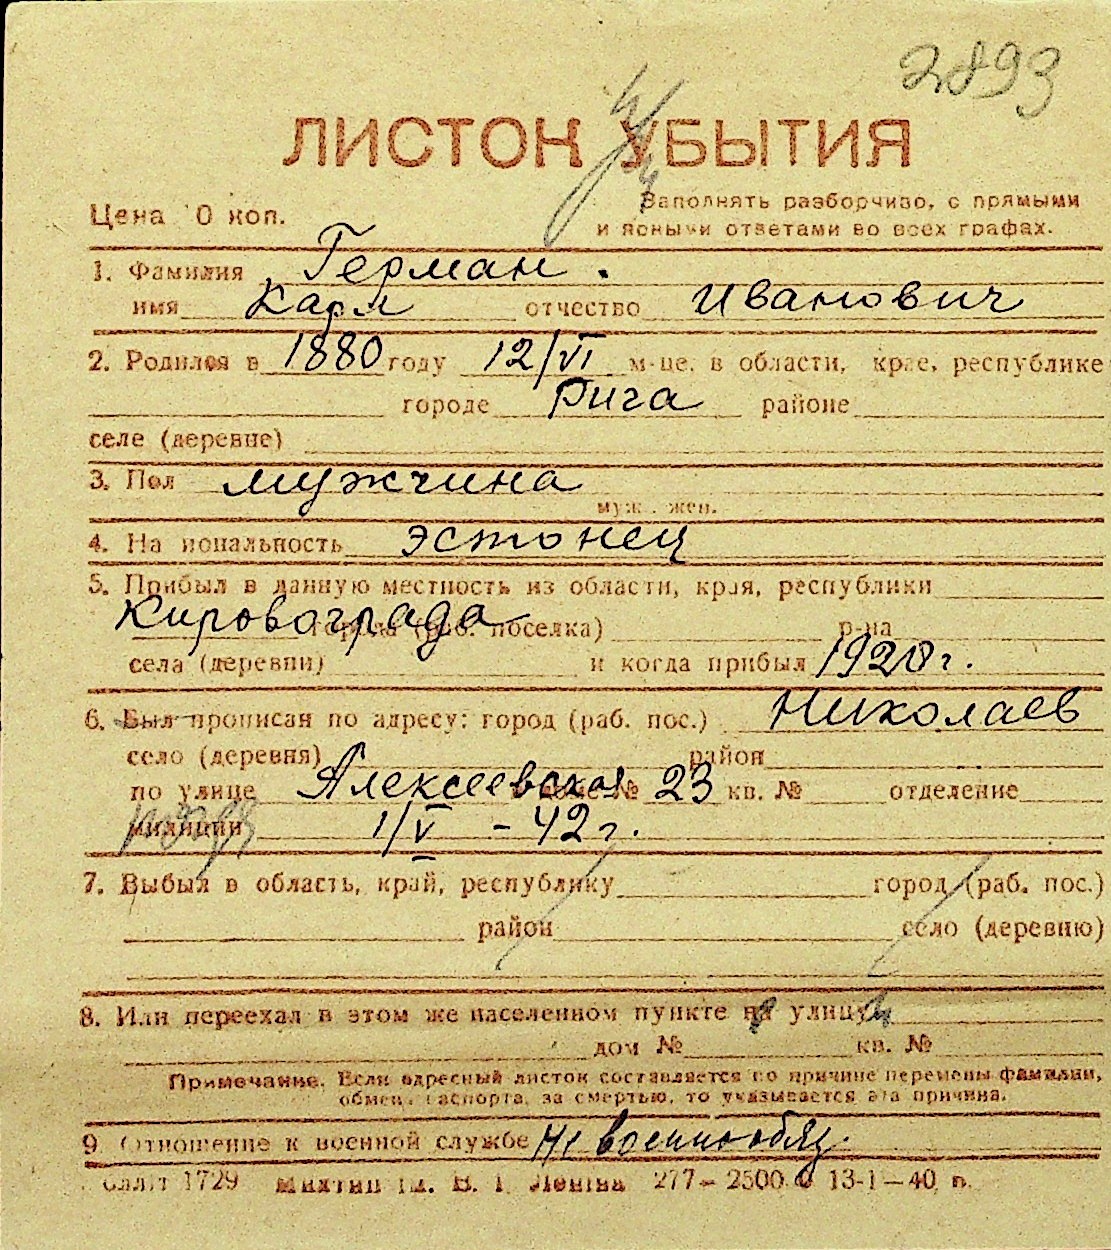 2893
ЛИСТОК УБЫТИЯ
Цена 0 коп.
Заполнять разборчиво, с прямыми
и ясными ответами во всех графах.
1. Фамилия Герман.
имя Карл отчество Иванович
2. Родился в 1880 году 12/VI м-це, в области, крае, республике
городе Рига районе
селе (деревне)
3. Пол мужчина
муж. жен.
4. Национальность эстонец
5. Прибыл в данную местность из области, края, республики
Кировограда города (раб. поселка) р-на
села (деревни) и когда прибыл 1920 г.
6. Был прописан по адресу: город (раб. пос.) Николаев
село (деревня) район
по улице Алексеевская № 23 кв. № отделение
милиции 1/V - 42 г.
7. Выбыл в область, край, республику город (раб. пос.)
район село (деревню)
8. Или переехал в этом же населенном пункте на улицу
дом № кв. №
Примечание. Если адресный листок составляется по причине перемены фамилии,
обмена паспорта, за смертью, то указывается эта причина.
9 Отношение к военной службе Не военнообяз.
1729 им. В. І. Леніна 277 - 2500 13-1-40 п.